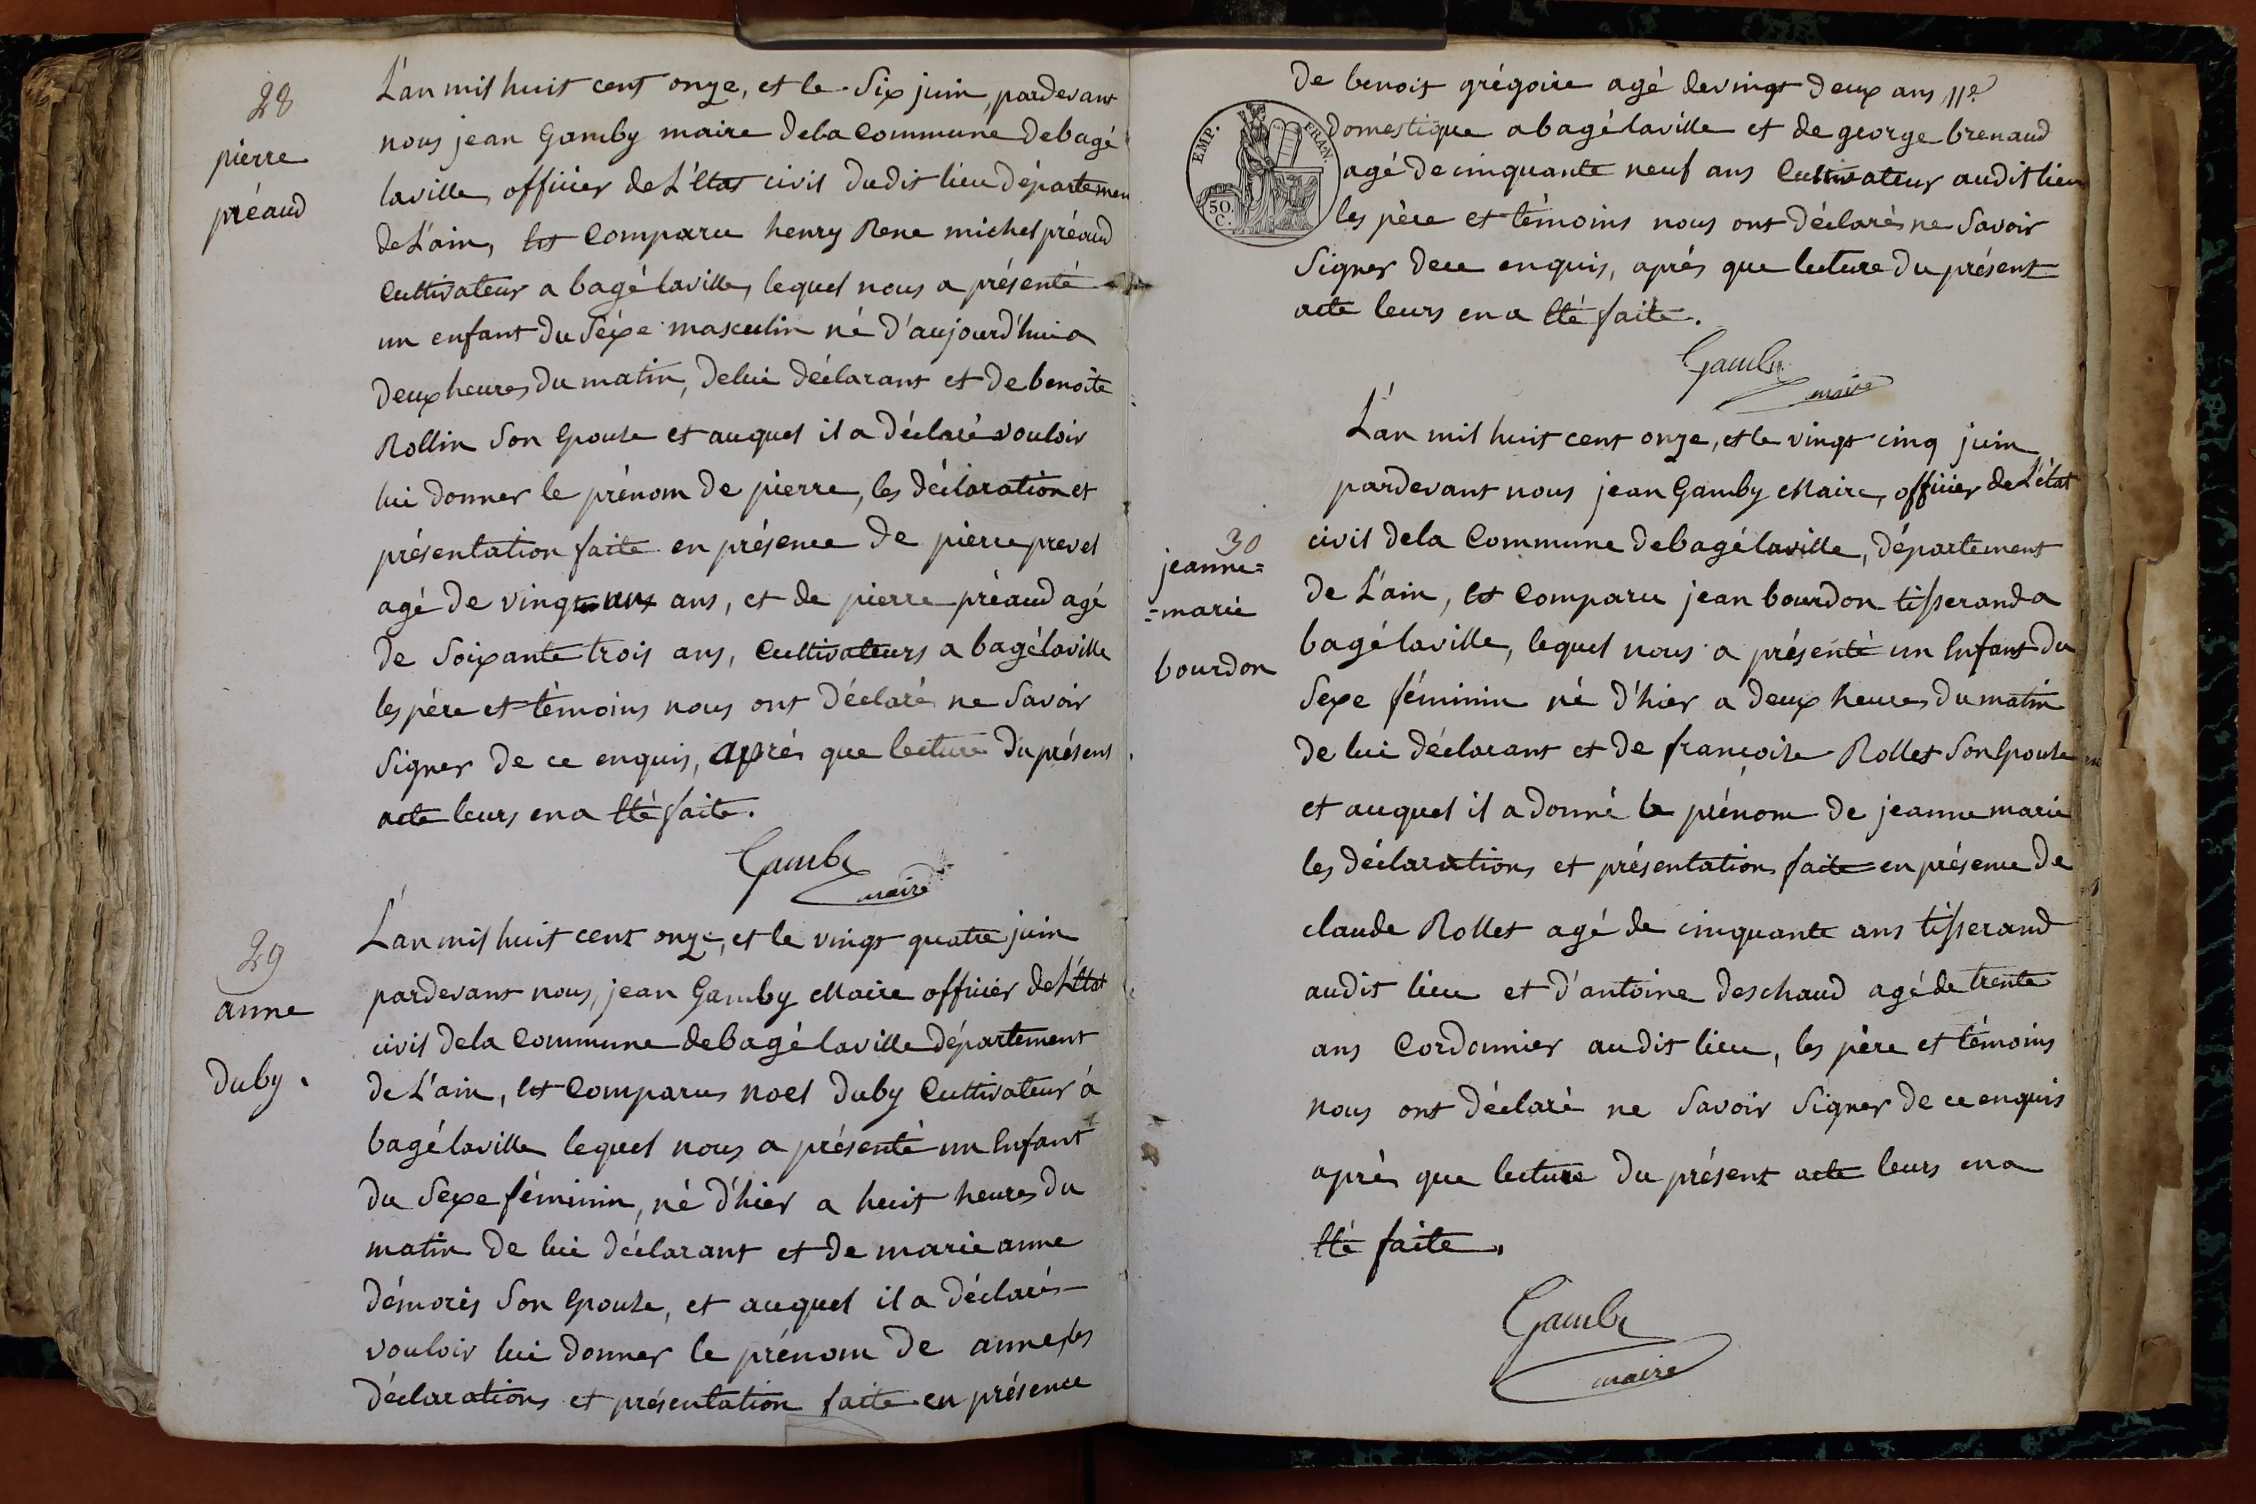 28
pierre
préaud
L'an mil huit cent onze, et le Six juin, pardevant
nous jean Gamby maire dela Commune debagé
laville, officier de L'Etat civil dudit lieu départemen
deL'ain, Est Comparu henry Rene michel préaud
Cultivateur a bagé laville, lequel nous a présenté
un enfant du Sexe masculin né d'aujourd'hui a
deux heures du matin, delui déclarant et de benoite
Rollin Son Epouse et auquel il a déclaré vouloir
lui donner le prénom de pierre, les déclaration et
présentation faite en présence de pierre prevel
agé de vingt ans, et de pierre préaud agé
de Soixante trois ans, Cultivateurs a bagélaville
les père et témoins nous ont déclaré ne Savoir
Signer de ce enquis, après que lecture du présent
acte leurs en a Eté faite.
Gamby
maire
29
anne
duby.
L'an mil huit cent onze, et le vingt quatre juin
pardevant nous, jean Gamby Maire officier de L'Etat
civil dela Commune debagé laville département
de L'ain, Est Comparus noel duby Cultivateur à
bagélaville lequel nous a présenté un Enfant
du Sexe féminin, né d'hier a huit heures du
matin de lui déclarant et de marie anne
démorés Son Epouse, et auquel il a déclarés
vouloir lui donner le prénom de anne, les
déclarations et présentation faite en présence
de benoit grégoire agé devingt deux ans
EMP. FRAN.
50. C.
domestique abagélaville et de george brenaud
agé de cinquante neuf ans Cultivateur audit lieu
les père et témoins nous ont déclarés ne Savoir
Signer dece enquis, après que lecture du présent
acte leurs en a Eté faite.
Gamby
maire
30
jeanne=
=marie
bourdon
L'an mil huit cent onze, et le vingt cinq juin
pardevant nous jean Gamby Maire, officier de L'état
civil dela Commune debagélaville, département
de L'ain, Est Comparu jean bourdon tisserand a
bagélaville, lequel nous a présenté un Enfant du
Sexe féminin né d'hier a deux heures du matin
de lui déclarant et de françoise Rollet Son Epouse
et auquel il a donné le prénom de jeanne marie
les déclarations et présentation faite en présence de
claude Rollet agé de cinquante ans tisserand
audit lieu et d'antoine deschaud agé de trente
ans Cordonnier audit lieu, les père et témoins
nous ont déclaré ne Savoir Signer de ce enquis
après que lecture du présent acte leurs en a
Eté faite,
Gamby
maire